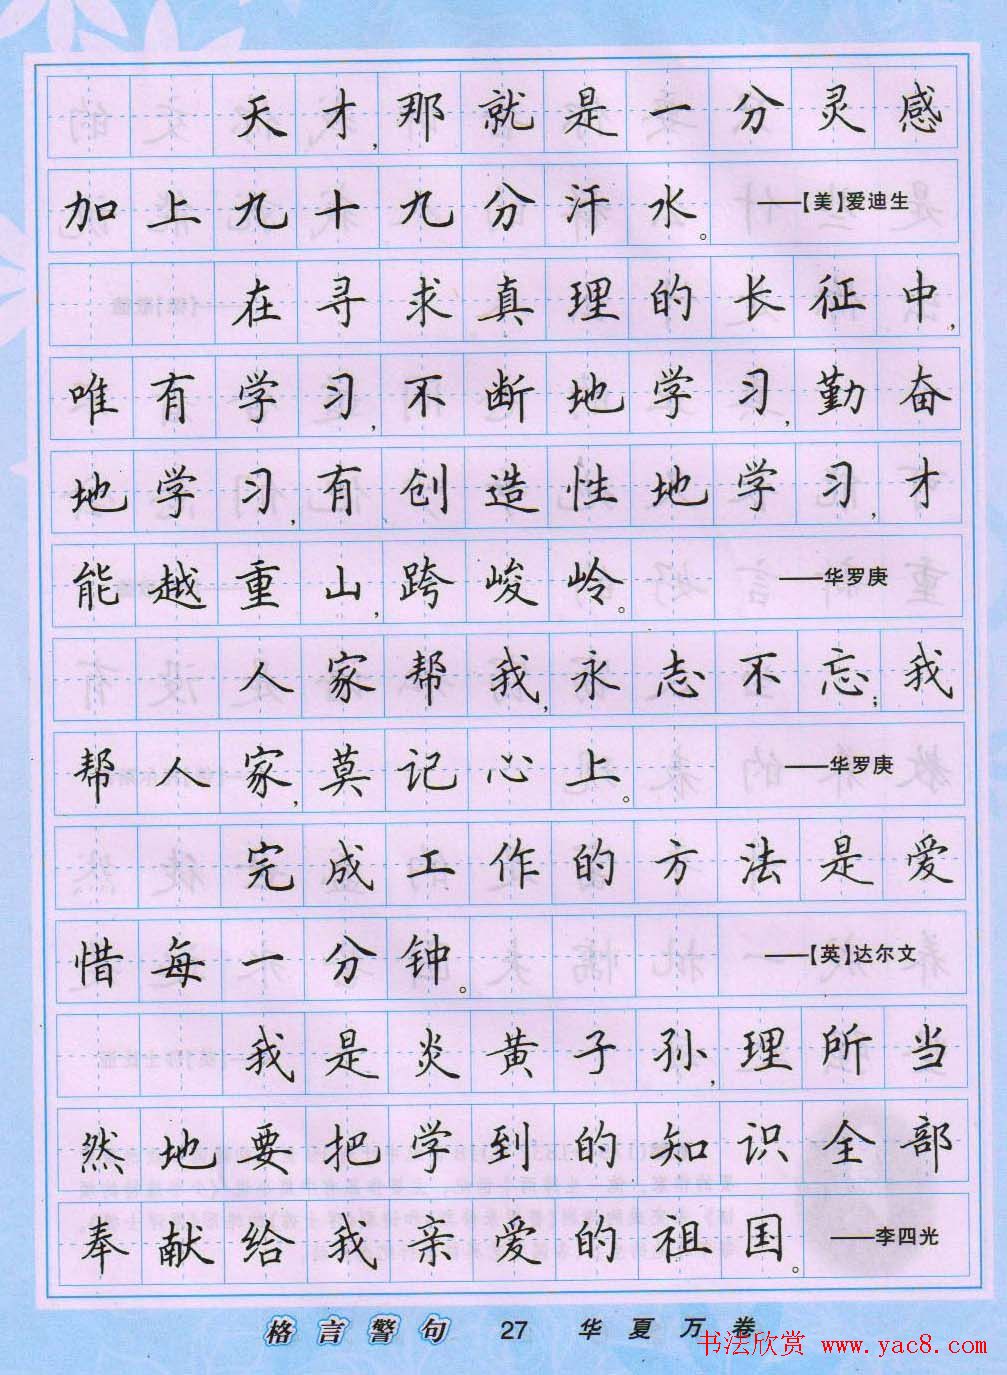 天才，那就是一分灵感
加上九十九分汗水。 ——【美】爱迪生
在寻求真理的长征中，
唯有学习，不断地学习，勤奋
地学习，有创造性地学习，才
能越重山，跨峻岭。 ——华罗庚
人家帮我，永志不忘；我
帮人家，莫记心上。 ——华罗庚
完成工作的方法是爱
惜每一分钟。 ——【英】达尔文
我是炎黄子孙，理所当
然地要把学到的知识全部
奉献给我亲爱的祖国。 ——李四光
格言警句 27 华夏万卷
书法欣赏 www.yac8.com